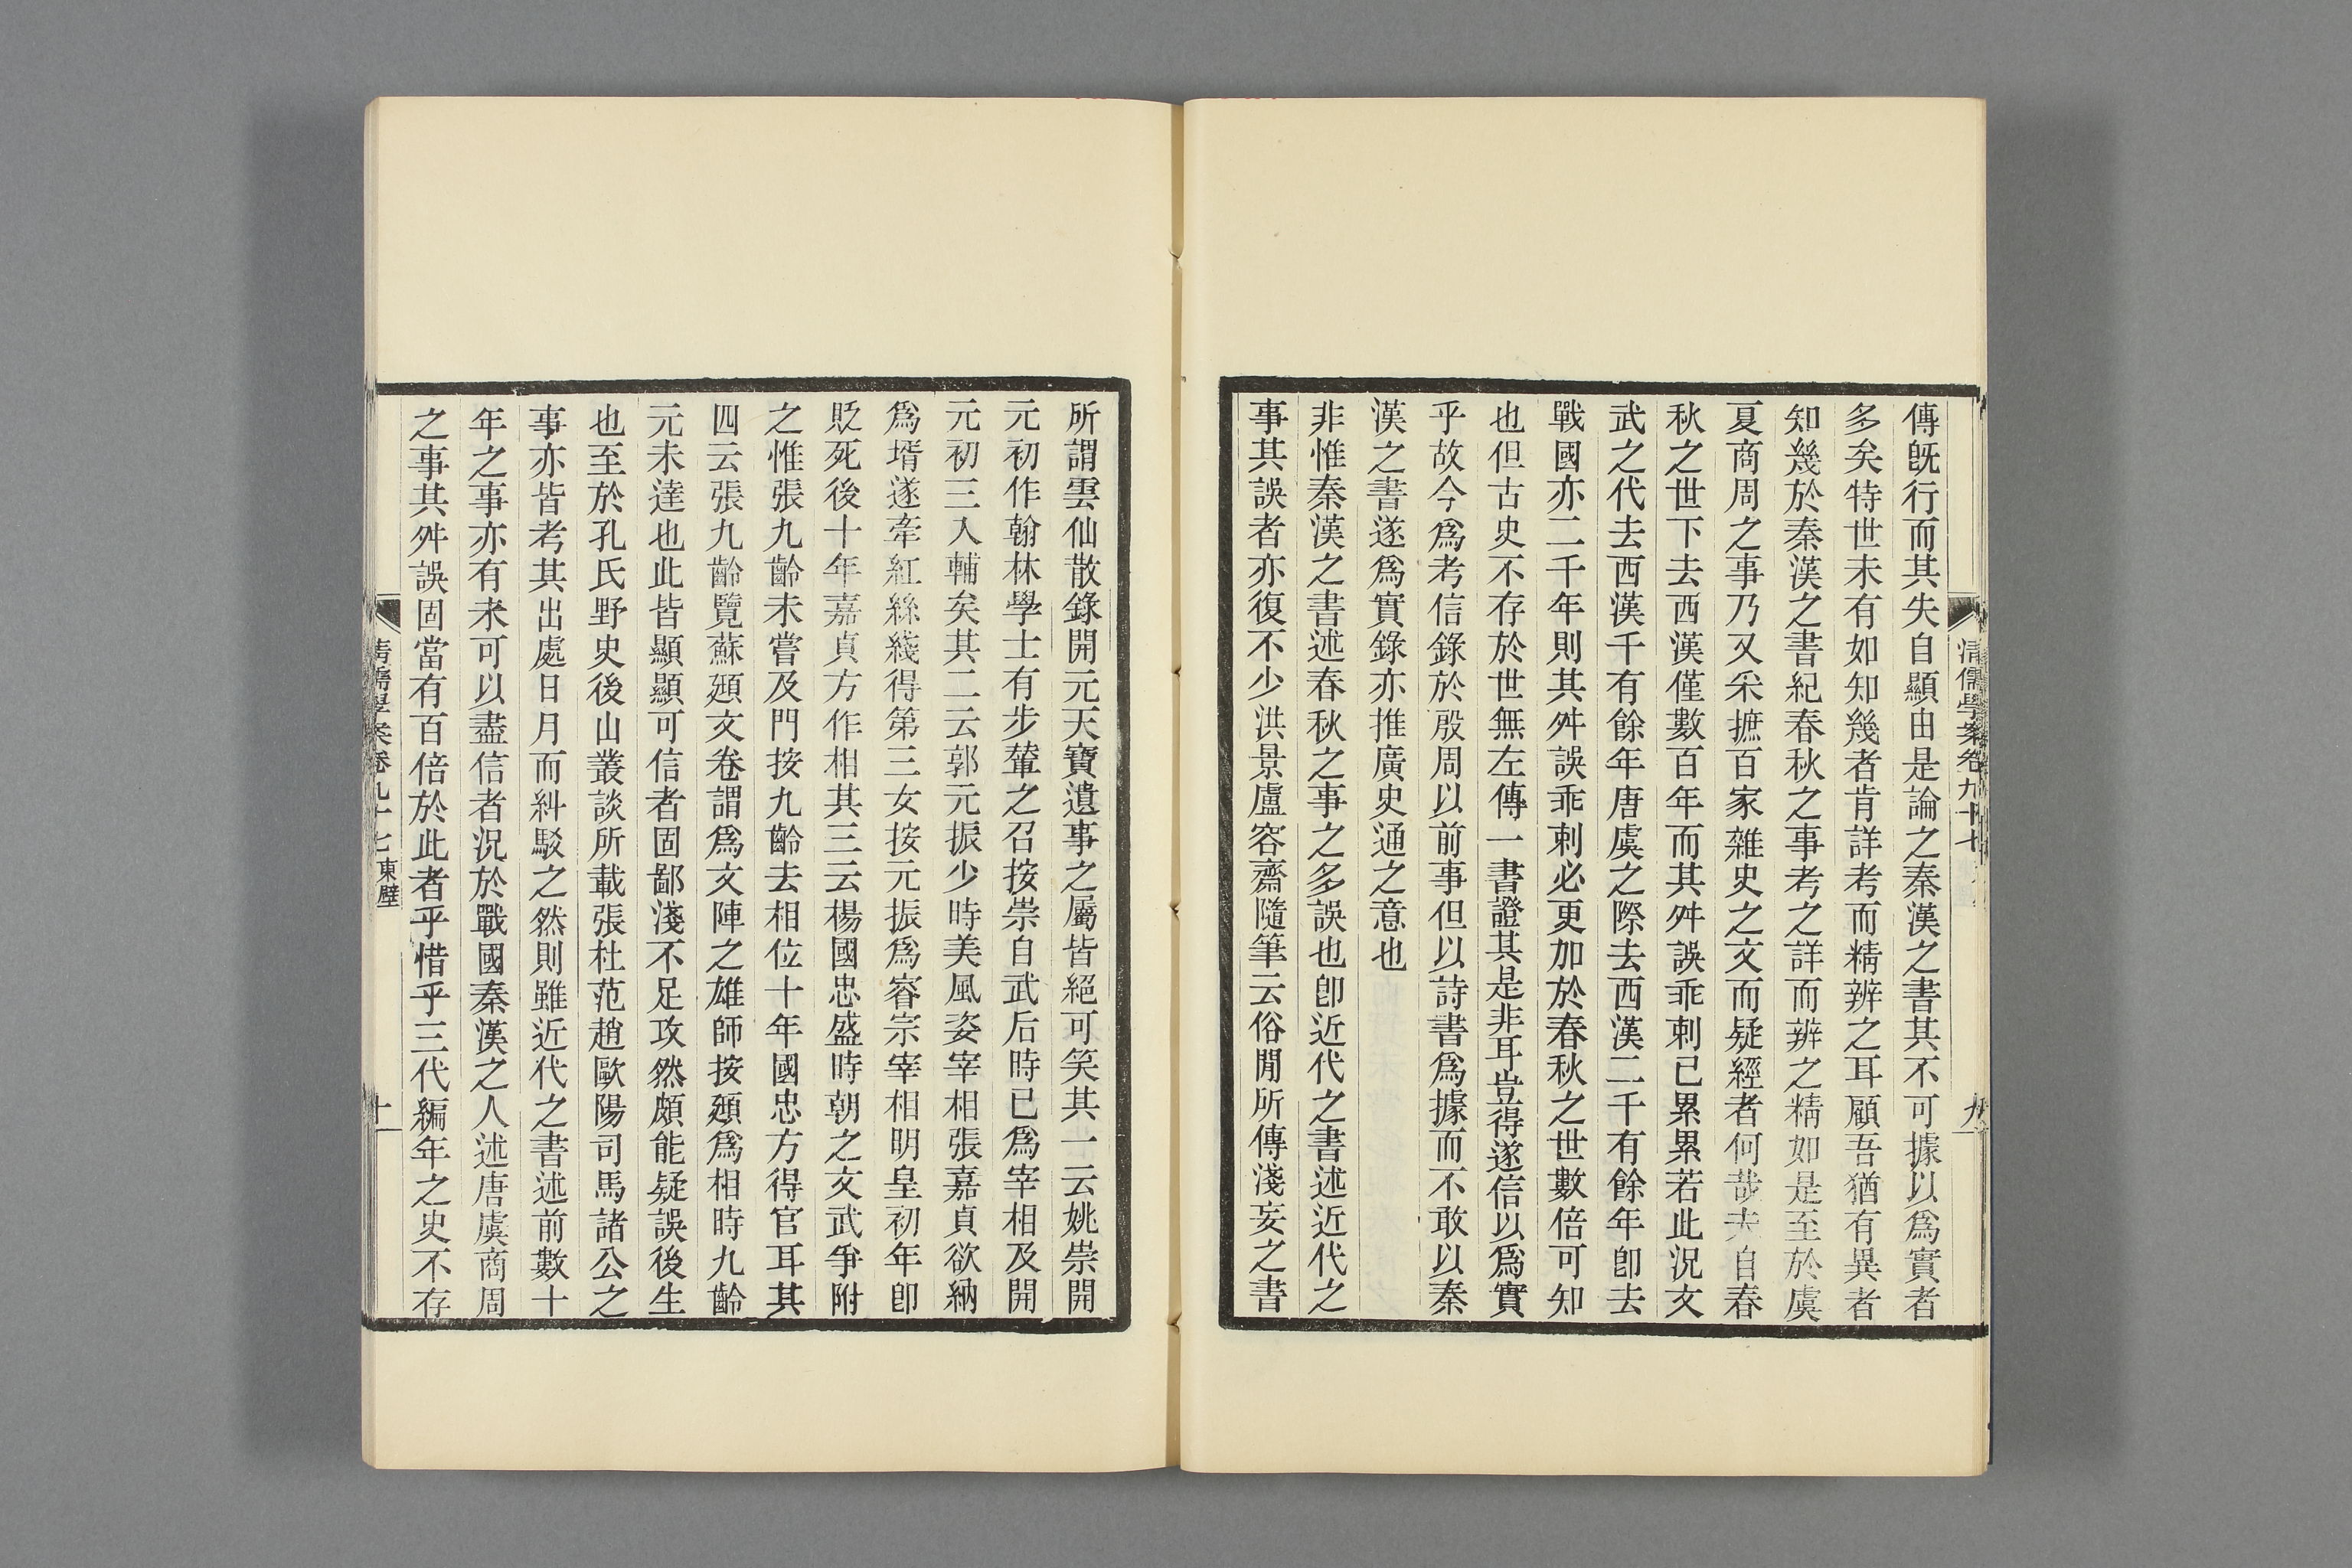 清儒學案卷九十七
九
傳旣行而其失自顯由是論之秦漢之書其不可據以爲實者
多矣特世未有如知幾者肯詳考而精辨之耳顧吾猶有異者
知幾於秦漢之書紀春秋之事考之詳而辨之精如是至於虞
夏商周之事乃又采摭百家雜史之文而疑經者何哉夫自春
秋之世下去西漢僅數百年而其舛誤乖剌已累累若此況文
武之代去西漢千有餘年唐虞之際去西漢二千有餘年卽去
戰國亦二千年則其舛誤乖剌必更加於春秋之世數倍可知
也但古史不存於世無左傳一書證其是非耳豈得遂信以爲實
乎故今爲考信錄於殷周以前事但以詩書爲據而不敢以秦
漢之書遂爲實錄亦推廣史通之意也
非惟秦漢之書述春秋之事之多誤也卽近代之書述近代之
事其誤者亦復不少洪景盧容齋隨筆云俗閒所傳淺妄之書
所謂雲仙散錄開元天寶遺事之屬皆絕可笑其一云姚崇開
元初作翰林學士有步輦之召按崇自武后時已爲宰相及開
元初三入輔矣其二云郭元振少時美風姿宰相張嘉貞欲納
爲壻遂牽紅絲綫得第三女按元振爲睿宗宰相明皇初年卽
貶死後十年嘉貞方作相其三云楊國忠盛時朝之文武爭附
之惟張九齡未嘗及門按九齡去相位十年國忠方得官耳其
四云張九齡覽蘇頲文卷謂爲文陣之雄師按頲爲相時九齡
元未達也此皆顯顯可信者固鄙淺不足攻然頗能疑誤後生
也至於孔氏野史後山叢談所載張杜范趙歐陽司馬諸公之
事亦皆考其出處日月而糾駁之然則雖近代之書述前數十
年之事亦有未可以盡信者況於戰國秦漢之人述唐虞商周
之事其舛誤固當有百倍於此者乎惜乎三代編年之史不存
清儒學案卷九十七 東壁
十